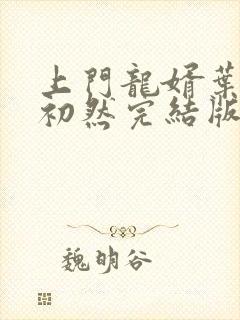 上門龍婿葉
初然完結版
魏明谷